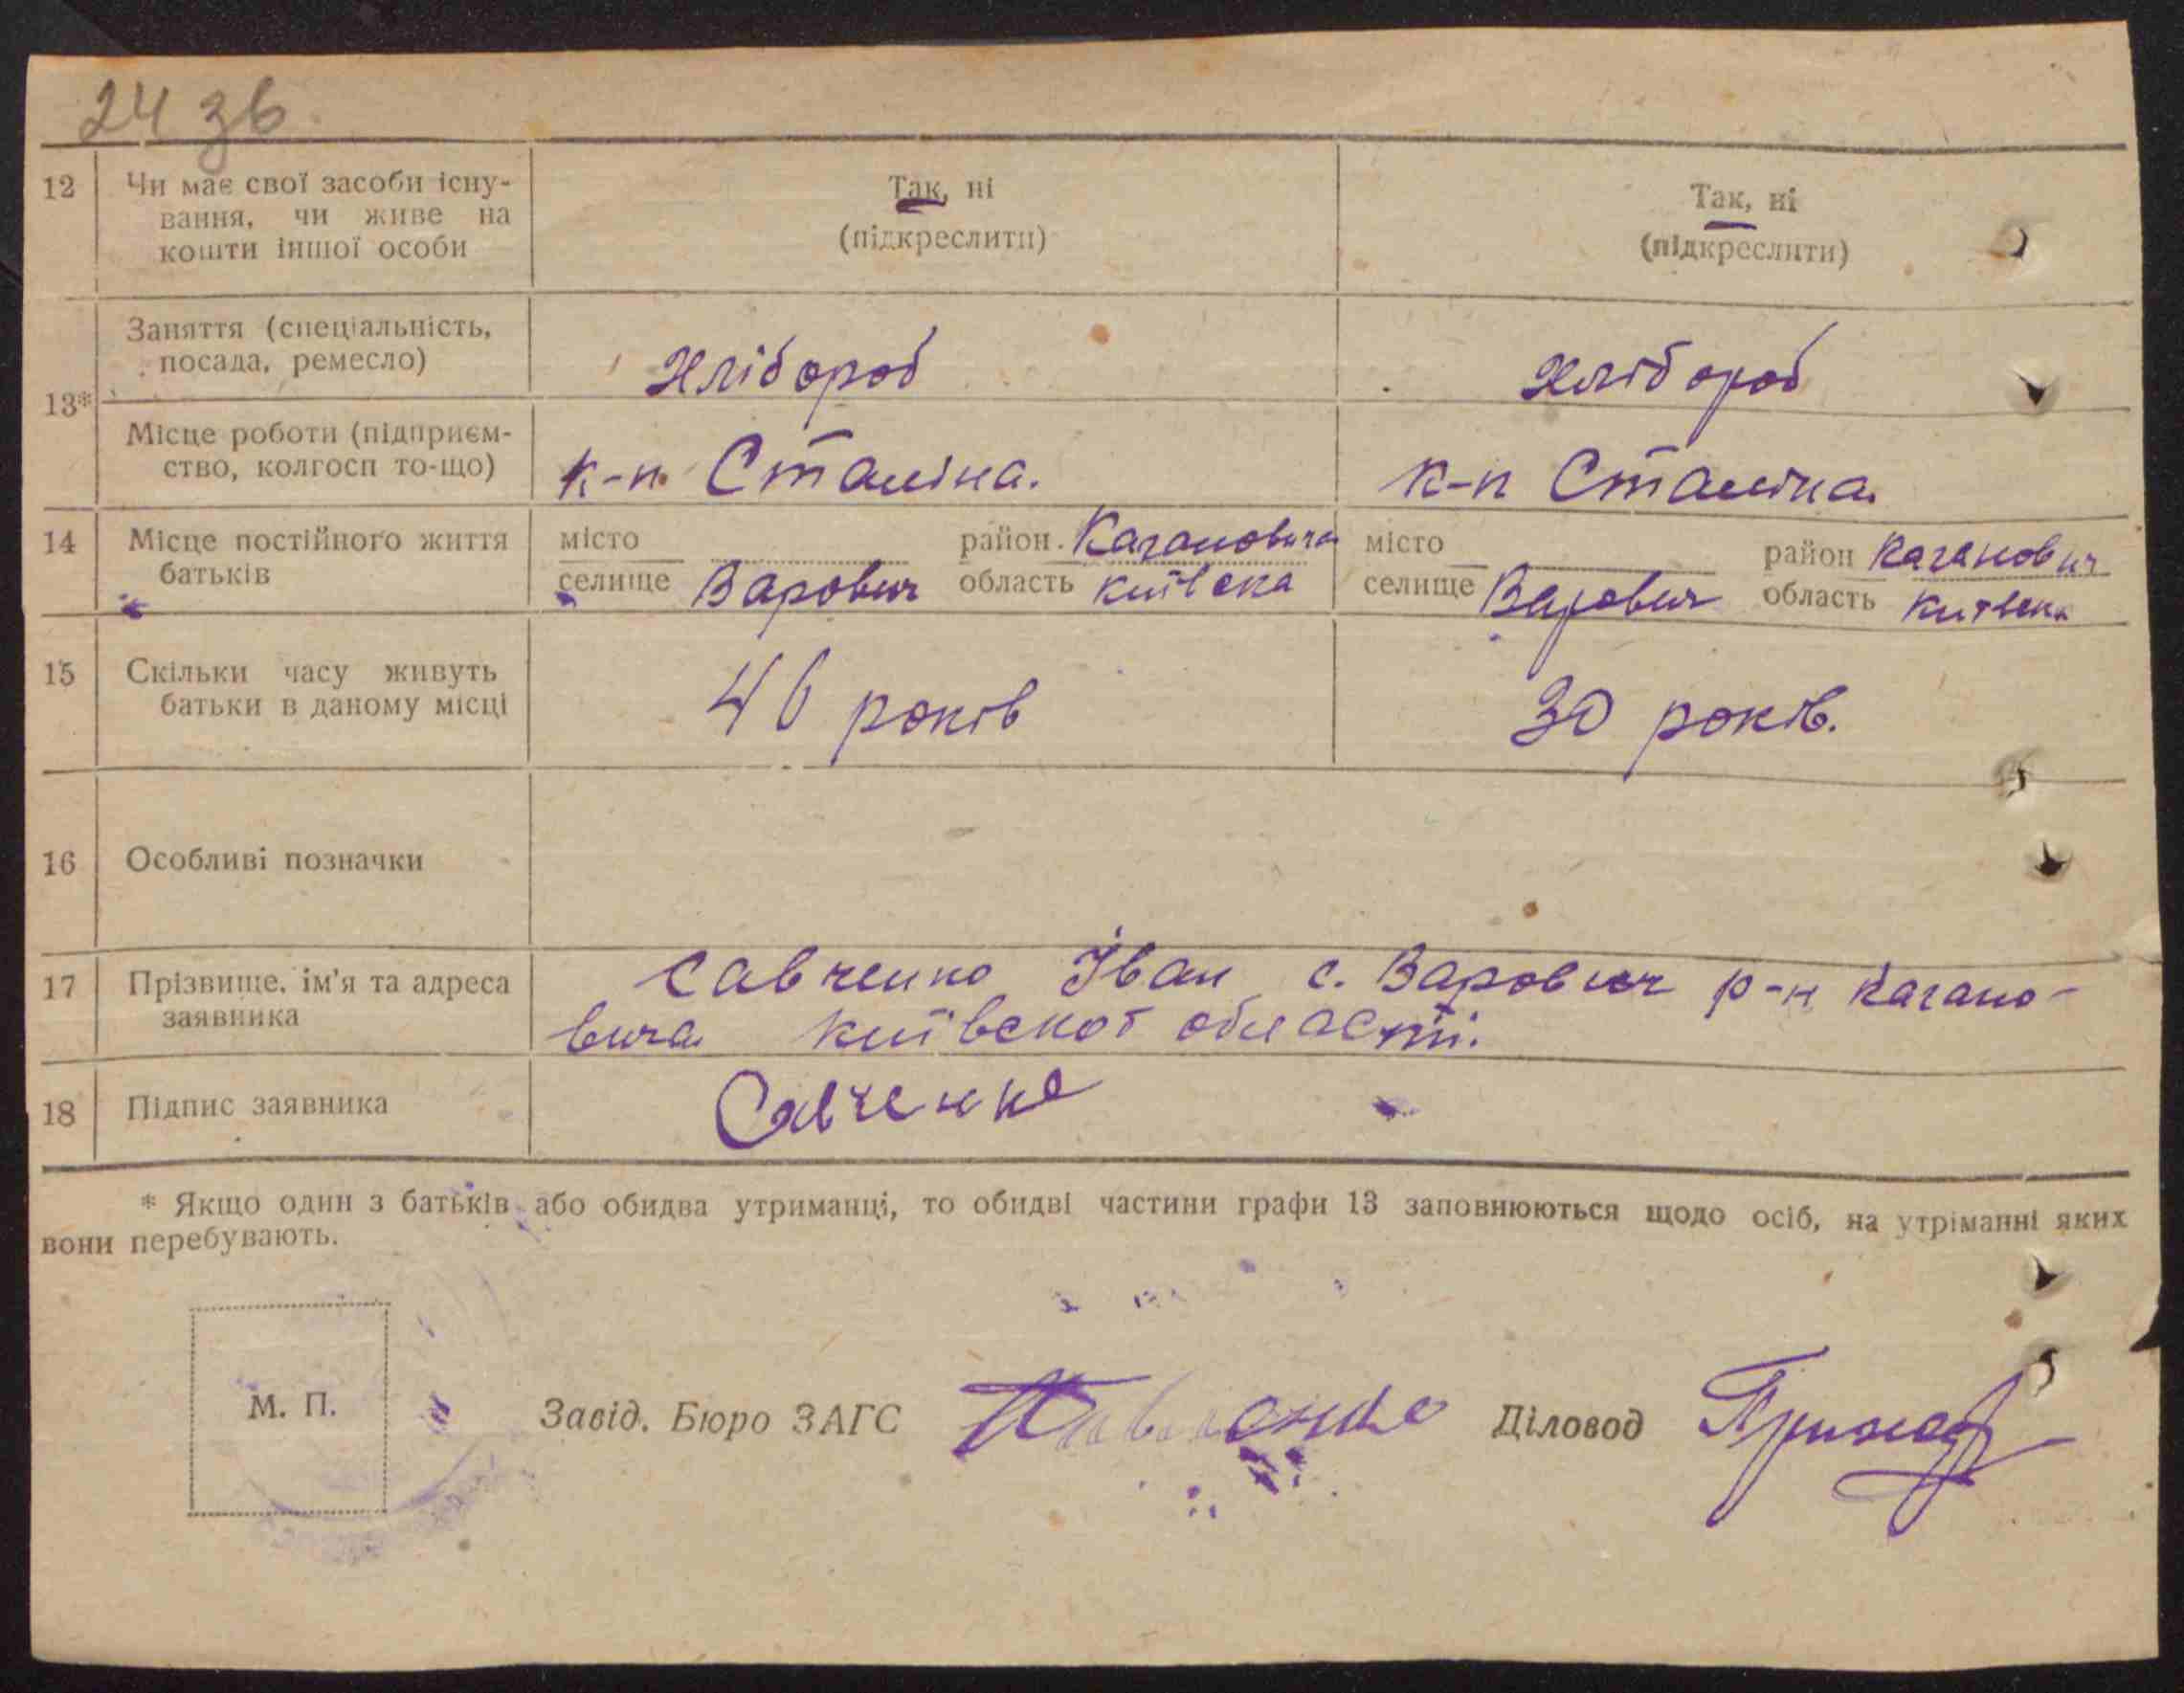 24 зв.
12 Чи має свої засоби існу- Так, ні Так, ні
вання, чи живе на (підкреслити) (підкреслити)
кошти іншої особи
Заняття (спеціальність,
посада, ремесло) Хлібороб Хлібороб
13*
Місце роботи (підприєм-
ство, колгосп то-що) к-п Сталіна. к-п Сталіна.
14 Місце постійного життя місто район Кагановича місто район Каганович
батьків селище Варович область київска селище Варович область київска
15 Скільки часу живуть 46 років 30 років.
батьки в даному місці
16 Особливі позначки
17 Прізвище, ім'я та адреса Савченко Іван с. Варович р-н Кагано-
заявника вича київскої області.
18 Підпис заявника Савченко
* Якщо один з батьків або обидва утриманці, то обидві частини графи 13 заповнюються щодо осіб, на утріманні яких
вони перебувають.
М. П. Завід. Бюро ЗАГС Діловод